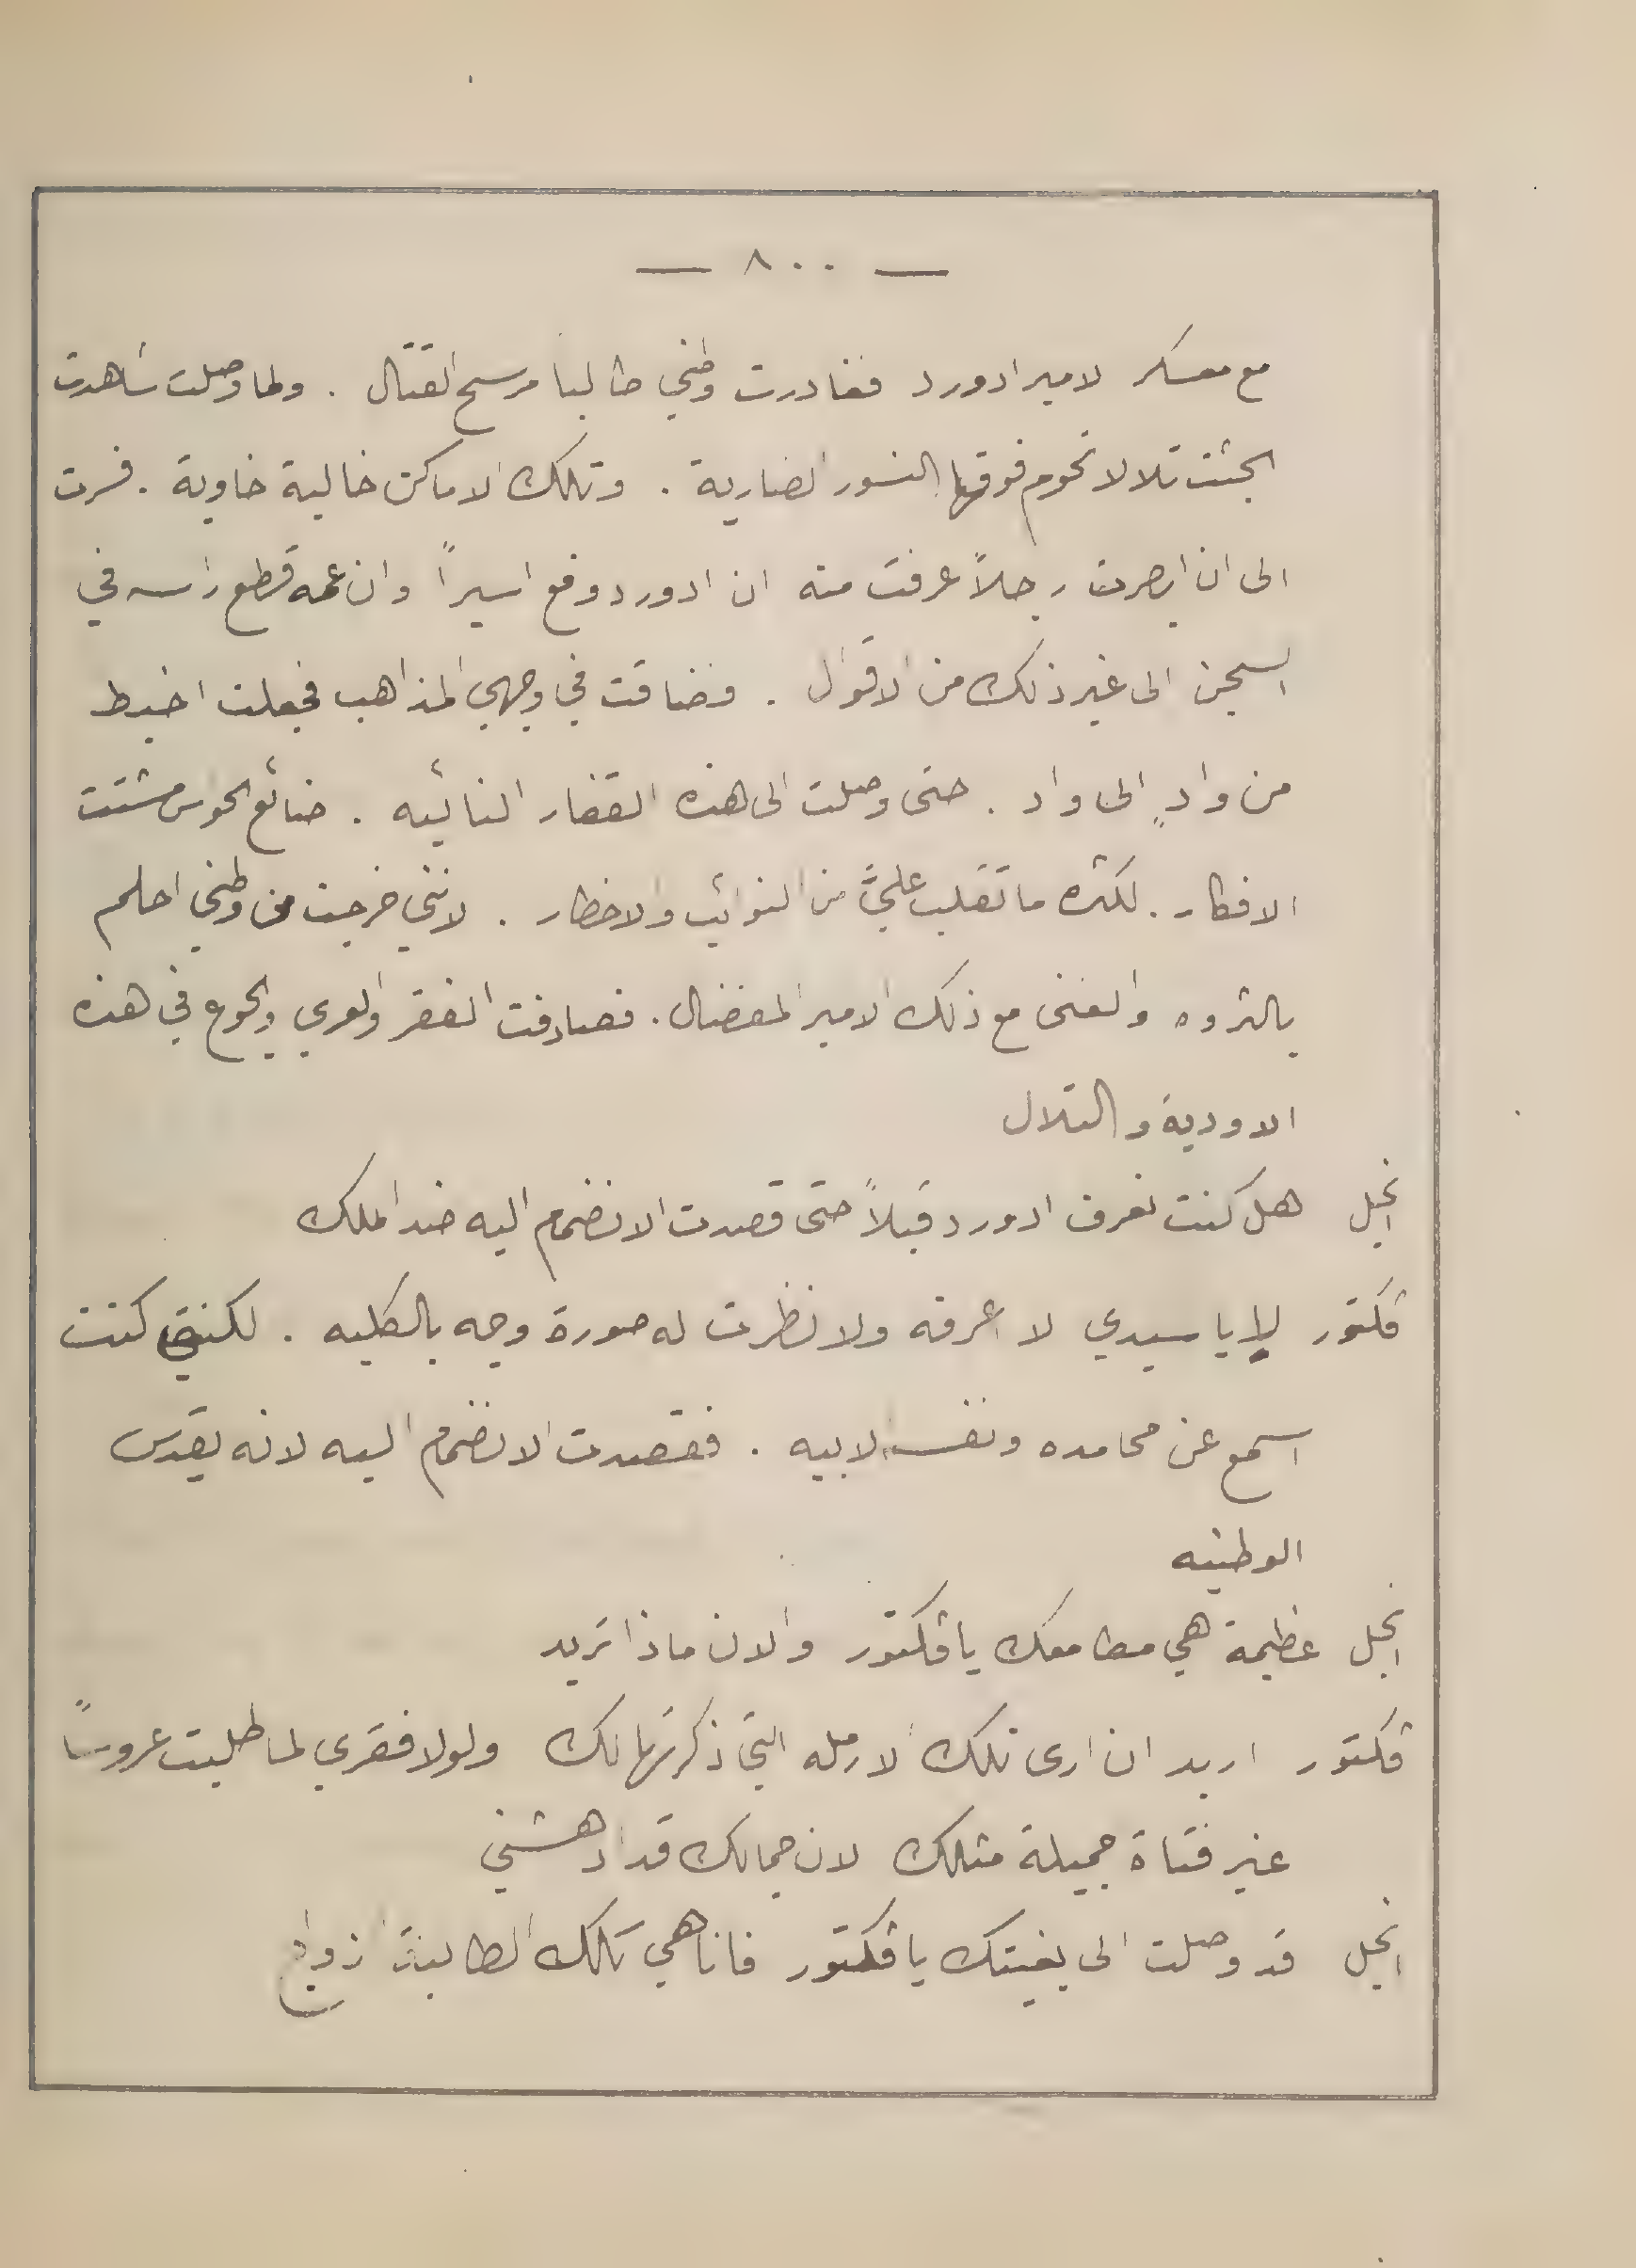 — ٨٠٠ —
مع معسكر الامير ادورد فغادرت وطني طالبا مرسح القتال . ولما وصلت شاهدت
الجثث تلالا تحوم فوقها النسور الضارية . وتلك الاماكن خالية خاوية . فسرت
الى ان ابصرت رجلاً عرفت منه ان ادورد وقع اسيراً وان عمه قطع راسه في
السجن الى غير ذلك من الاقوال . فضاقت في وجهي المذاهب فجعلت اخبط
من وادٍ الى واد . حتى وصلت الى هذه القفار النائيه . ضائع الحواس مشتت
الافكار . لكثره ما تقلب عليَّ من النوائب والاخطار . لانني خرجت من وطني احلم
بالثروه والغنى مع ذلك الامير المفضال . فصادفت الفقر والعري والجوع في هذه
الاودية والتلال
انجل هل كنت تعرف ادورد قبلاً حتى قصدت الانضمام اليه ضد الملك
ڤكتور لا يا سيدي لا اعرفه ولا نظرت له صورة وجه بالكليه . لكنني كنت
اسمع عن محامده ونفسه الابيه . فقصدت الانضمام اليه لانه يقدس
الوطنيه
انجل عظيمة هي مطامعك يا ڤكتور والان ماذا تريد
ڤكتور اريد ان ارى تلك الارمله التي ذكرتها لك ولولا فقري لما طلبت عروساً
غير فتاة جميلة مثلك لان جمالك قد ادهشني
انجل قد وصلت الى بغيتك يا ڤكتور فانا هي تلك الطالبة زواج